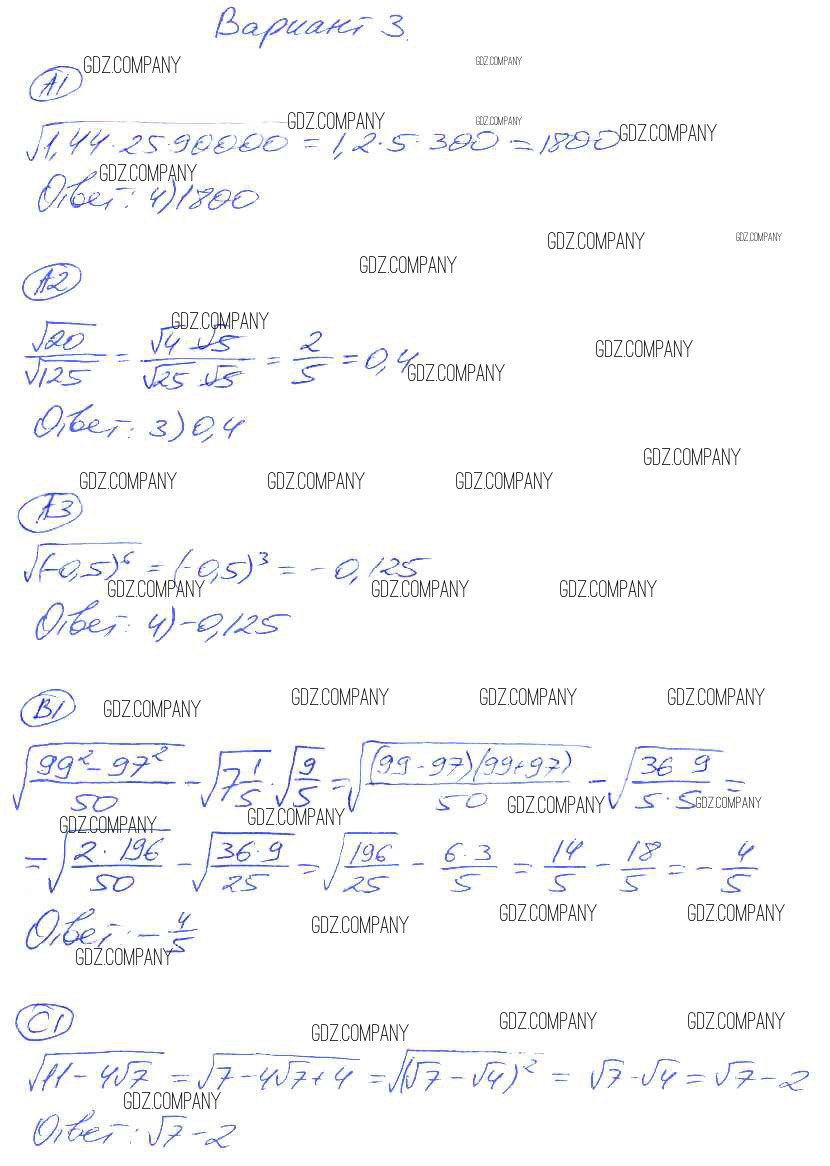 Вариант 3.
GDZ.COMPANY GDZ.COMPANY
А1
GDZ.COMPANY GDZ.COMPANY GDZ.COMPANY
√(1,44·25·90000) = 1,2·5·300 = 1800
GDZ.COMPANY
Ответ: 4) 1800
GDZ.COMPANY GDZ.COMPANY
GDZ.COMPANY
А2
GDZ.COMPANY
√20/√125 = (√4·√5)/(√25·√5) = 2/5 = 0,4
GDZ.COMPANY GDZ.COMPANY
Ответ: 3) 0,4
GDZ.COMPANY
GDZ.COMPANY GDZ.COMPANY GDZ.COMPANY
А3
√((-0,5)⁶) = (-0,5)³ = -0,125
GDZ.COMPANY GDZ.COMPANY GDZ.COMPANY
Ответ: 4) -0,125
GDZ.COMPANY GDZ.COMPANY GDZ.COMPANY
В1 GDZ.COMPANY
√((99²-97²)/50) - √(7 1/5)·√(9/5) = √((99-97)(99+97)/50) - √(36 9/(5·5)) =
GDZ.COMPANY GDZ.COMPANY
GDZ.COMPANY GDZ.COMPANY
= √(2·196/50) - √(36·9/25) = √(196/25) - 6·3/5 = 14/5 - 18/5 = -4/5
GDZ.COMPANY GDZ.COMPANY GDZ.COMPANY
Ответ: -4/5
GDZ.COMPANY
С1
GDZ.COMPANY GDZ.COMPANY GDZ.COMPANY
√(11-4√7) = √(7-4√7+4) = √((√7-√4)²) = √7-√4 = √7-2
GDZ.COMPANY
Ответ: √7-2